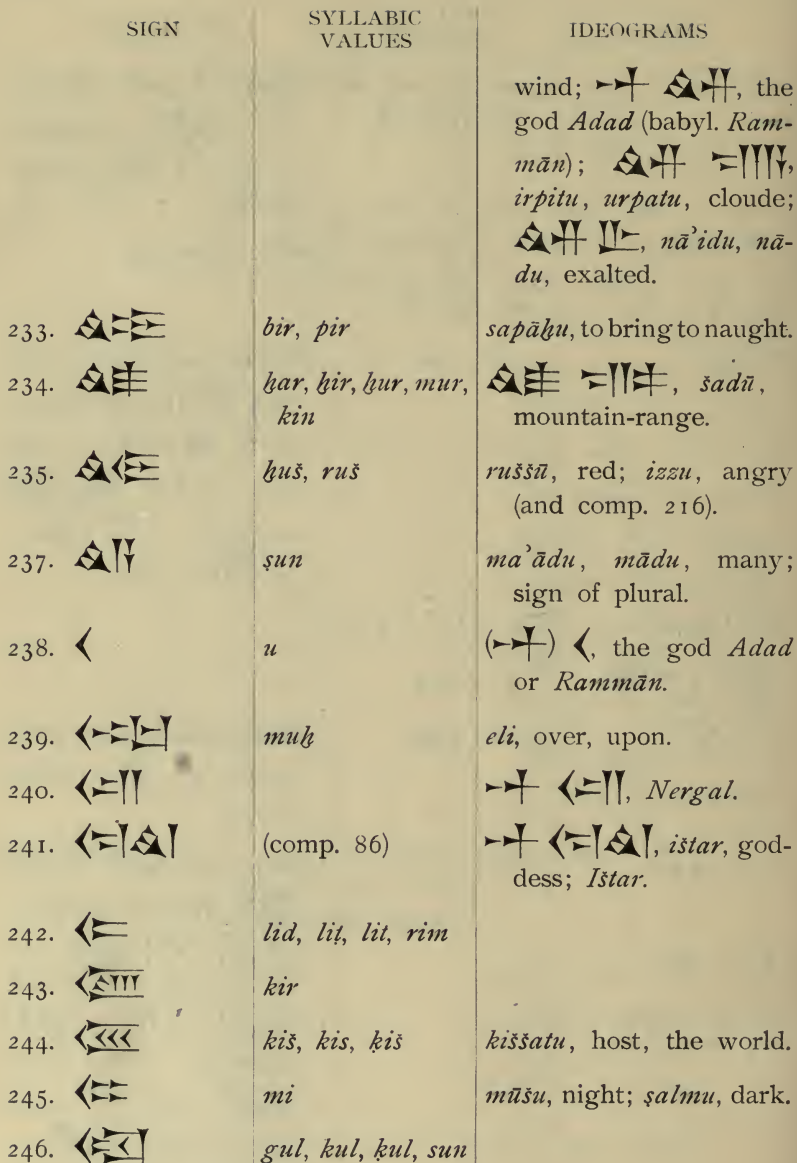 SIGN SYLLABIC VALUES IDEOGRAMS
wind; 𒀭 𒅎, the
god Adad (babyl. Ram-
mān); 𒅎
irpitu, urpatu, cloude;
𒅎 𒌇, nāʾidu, nā-
du, exalted.
233. bir, pir sapāḫu, to bring to naught.
234. 𒄯 ḫar, ḫir, ḫur, mur, 𒄯 , šadū,
kin mountain-range.
235. ḫuš, ruš ruššū, red; izzu, angry
(and comp. 216).
237. 𒄭𒀀 ṣun maʾādu, mādu, many;
sign of plural.
238. 𒌋 u (𒀭) 𒌋, the god Adad
or Rammān.
239. 𒌋𒅗 muḫ eli, over, upon.
240. 𒌋𒄥 𒀭 𒌋𒄥, Nergal.
241. 𒌋𒁯 (comp. 86) 𒀭 𒌋𒁯, ištar, god-
dess; Ištar.
242. 𒀖 lid, liṭ, lit, rim
243. kir
244. 𒆧 kiš, kis, ḳiš kiššatu, host, the world.
245. 𒈪 mi mūšu, night; ṣalmu, dark.
246. 𒄢 gul, kul, ḳul, sun